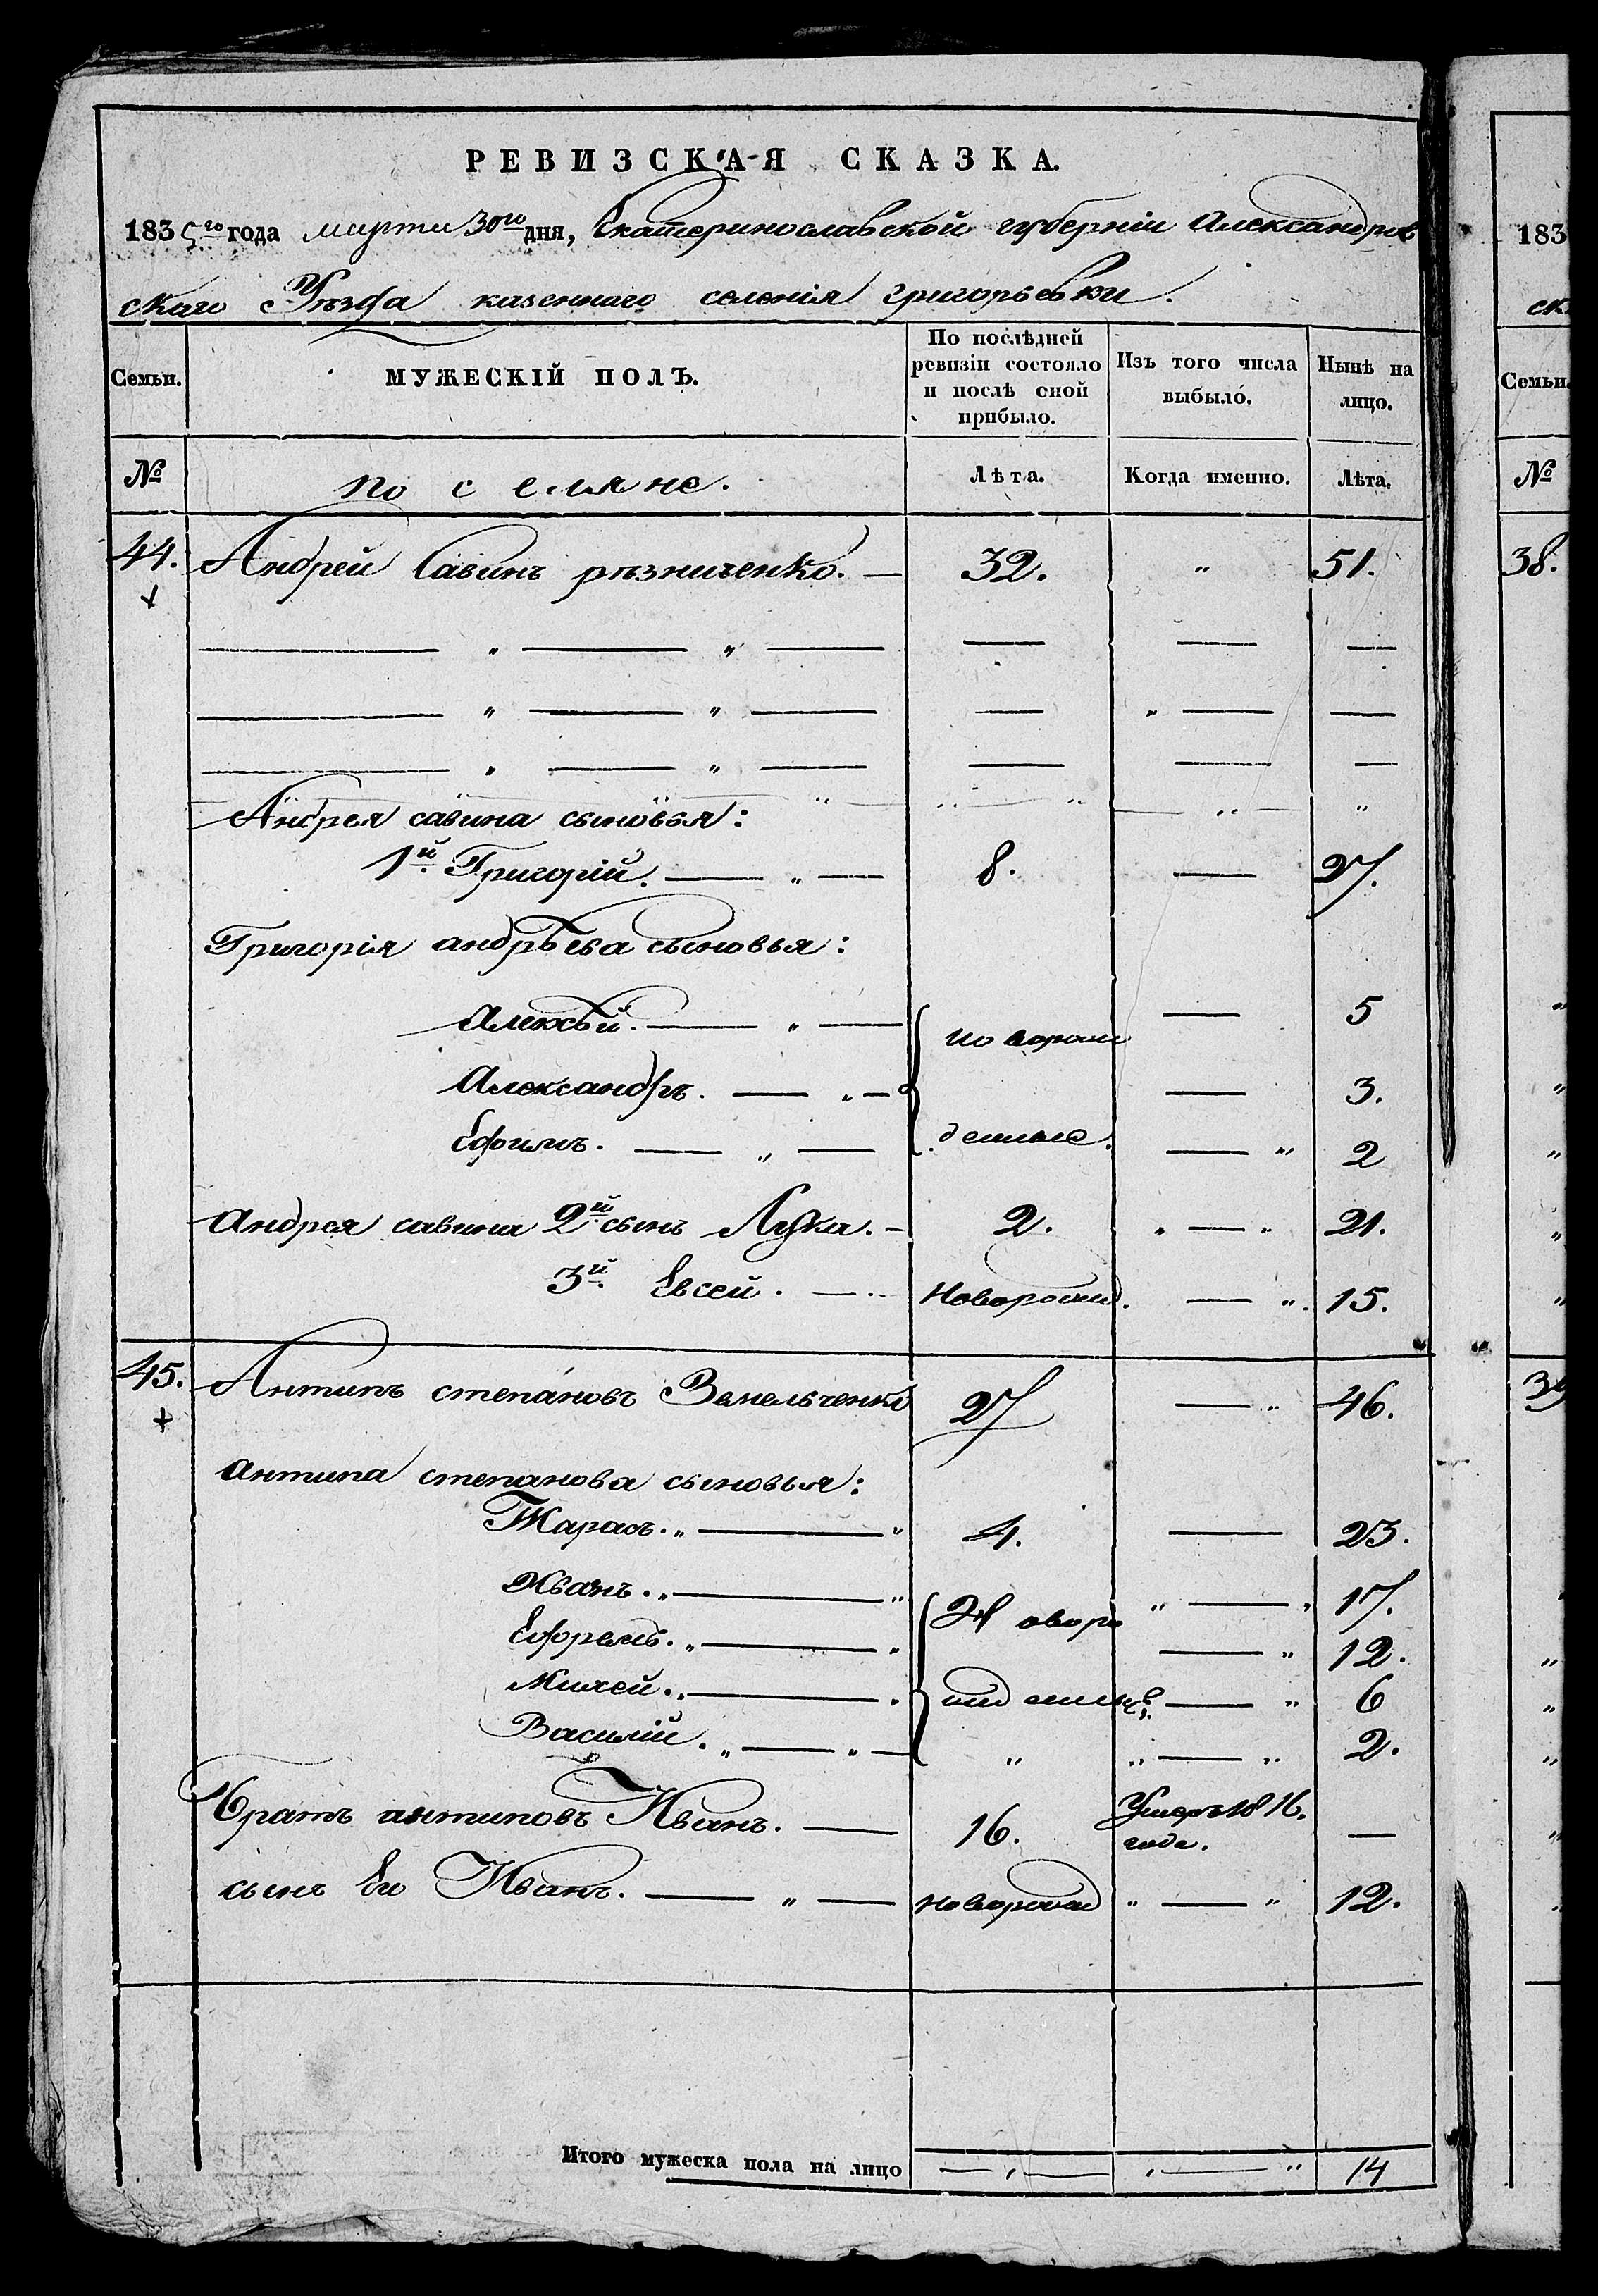 РЕВИЗСКАЯ СКАЗКА.
1835го года марта 30го дня, Екатеринославской губерніи Александров
скаго Уѣзда казеннаго селенія Григорьевки.
Семьи. МУЖЕСКІЙ ПОЛЪ. По послѣдней ревизіи состояло и послѣ оной прибыло. Изъ того числа выбыло. Нынѣ на лицо.
№ поселяне. Лѣта. Когда именно. Лѣта.
44. Андрей Савинъ рѣзниченко. — 32. " 51.
Андрея савина сыновья:
1й. Григорій. — " — 8. — 27.
Григорія андрѣева сыновья:
Алексѣй. — " — новорож — 5
Александръ. — " — — 3.
Ефимъ. — " — денные. — " 2
Андрея савина 2й сынъ Лука. — 2. " — " 21.
3й. Евсей. — Новорожд. — " 15.
45. Антипъ степановъ Земельченко 27 — " 46.
антипа степанова сыновья:
Тарасъ. " — " 4. — 23.
Иванъ. " — " Новоро " — " 17.
Ефремъ. " — " — " 12.
Михей. " — " — " 6
Василій. " — " — " " — " 2.
Братъ антиповъ Иванъ. — 16. Умеръ 1816. года. —
сынъ Его Иванъ. — " — новорожд " — " 12.
Итого мужеска пола на лицо — " — " — " 14
183
ск
Семьи.
№
38.
39